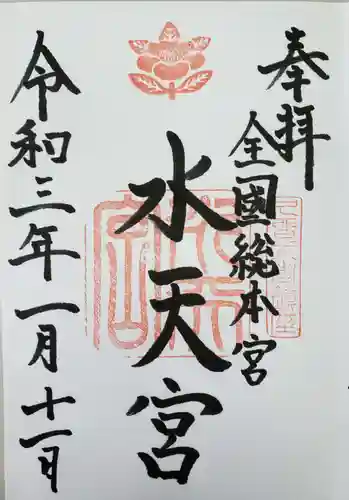 奉拝
全國総本宮
水天宮
令和三年一月十一日